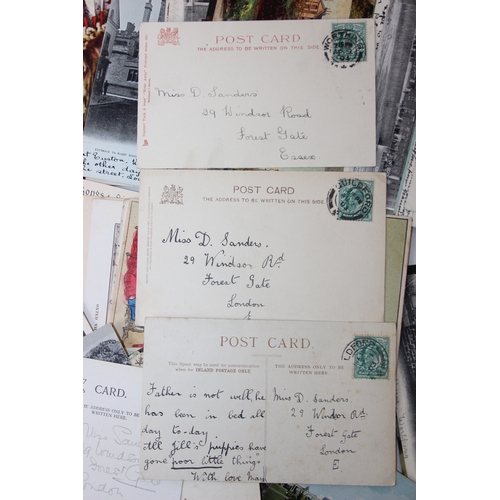 POST CARD
THE ADDRESS TO BE WRITTEN ON THIS SIDE.
Miss D. Sanders
29 Windsor Road
Forest Gate
Essex
POST CARD
THE ADDRESS TO BE WRITTEN ON THIS SIDE.
Miss D. Sanders.
29 Windsor Rd
Forest Gate
London
POST CARD.
This Space may be used for communication
when for INLAND POSTAGE ONLY.
THE ADDRESS ONLY TO BE
WRITTEN HERE.
Father is not well, he
has been in bed all
day to-day.
All Jill's puppies have
gone poor little things
With love May
Miss D. Sanders.
29 Windsor Rd.
Forest Gate
London
E.
CARD.
THE ADDRESS ONLY TO BE
WRITTEN HERE.
Forest
London
other day
the street.